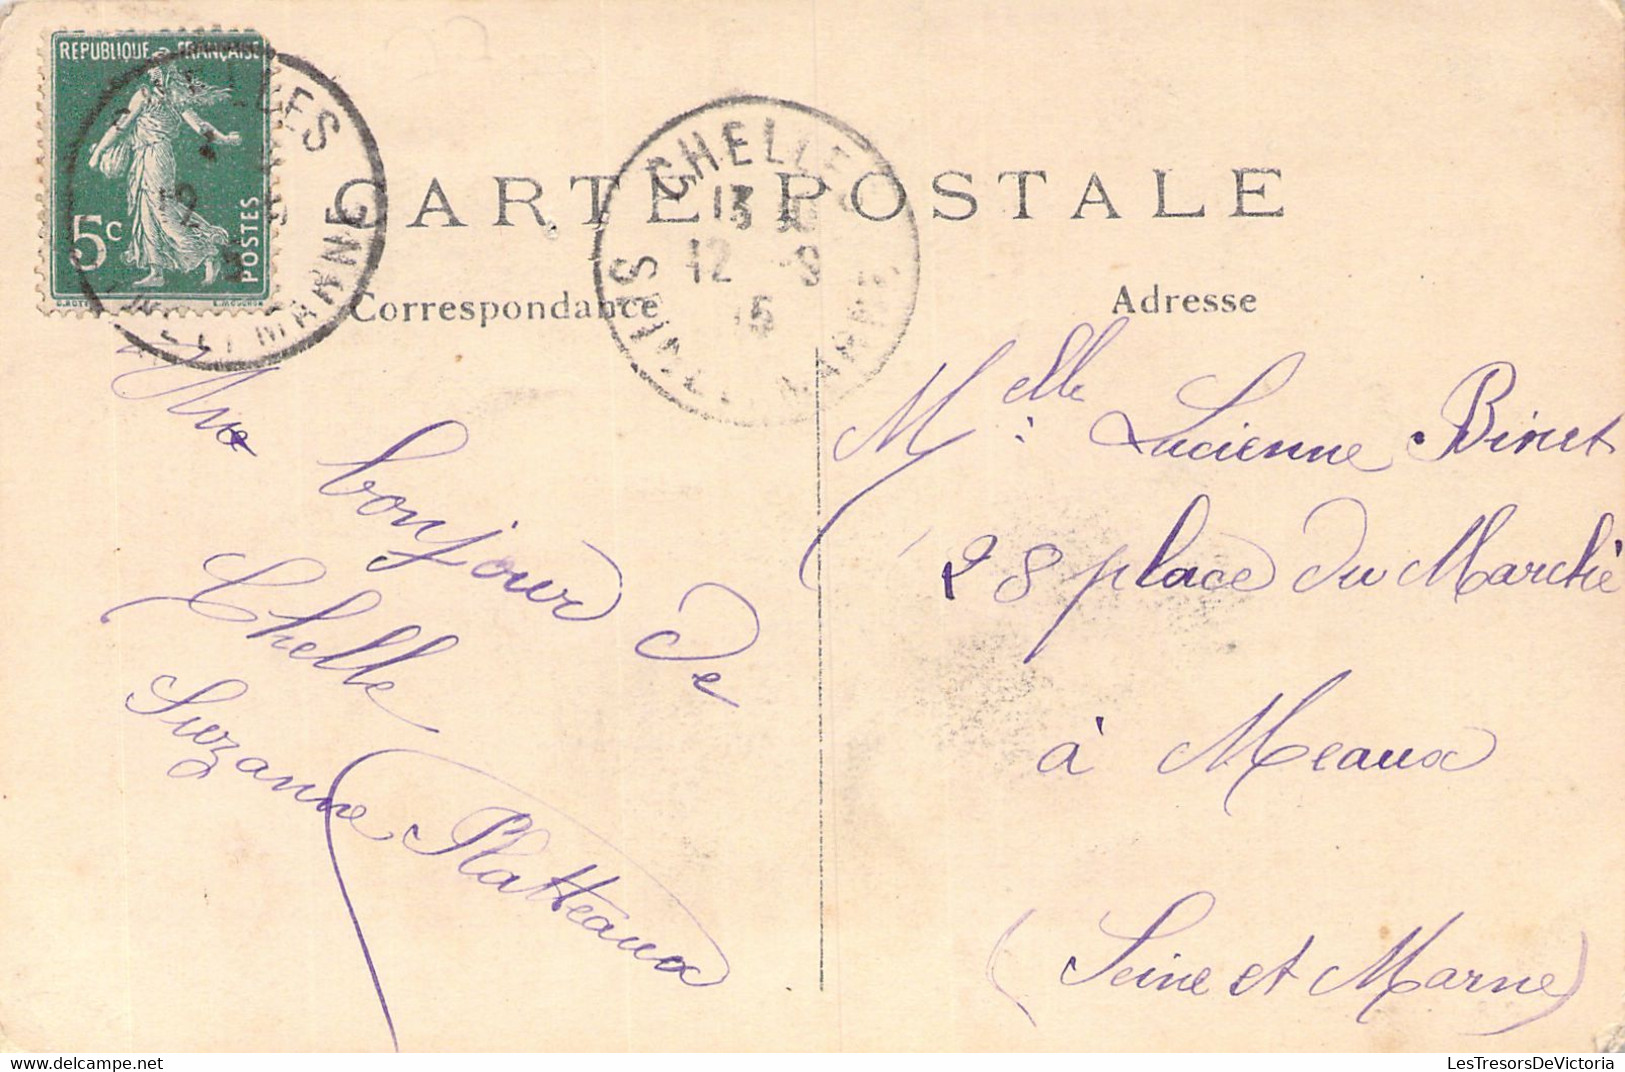 REPUBLIQUE FRANÇAISE
5c
POSTES
CARTE POSTALE
CHELLES
13
12 -9
15
SEINE-ET-MARNE
MARNE
Correspondance
Adresse
bonjour de
Chelle
Suzanne Platteaux
Melle Lucienne Binet
28 place du Marché
à Meaux
(Seine et Marne)
LesTresorsDeVictoria